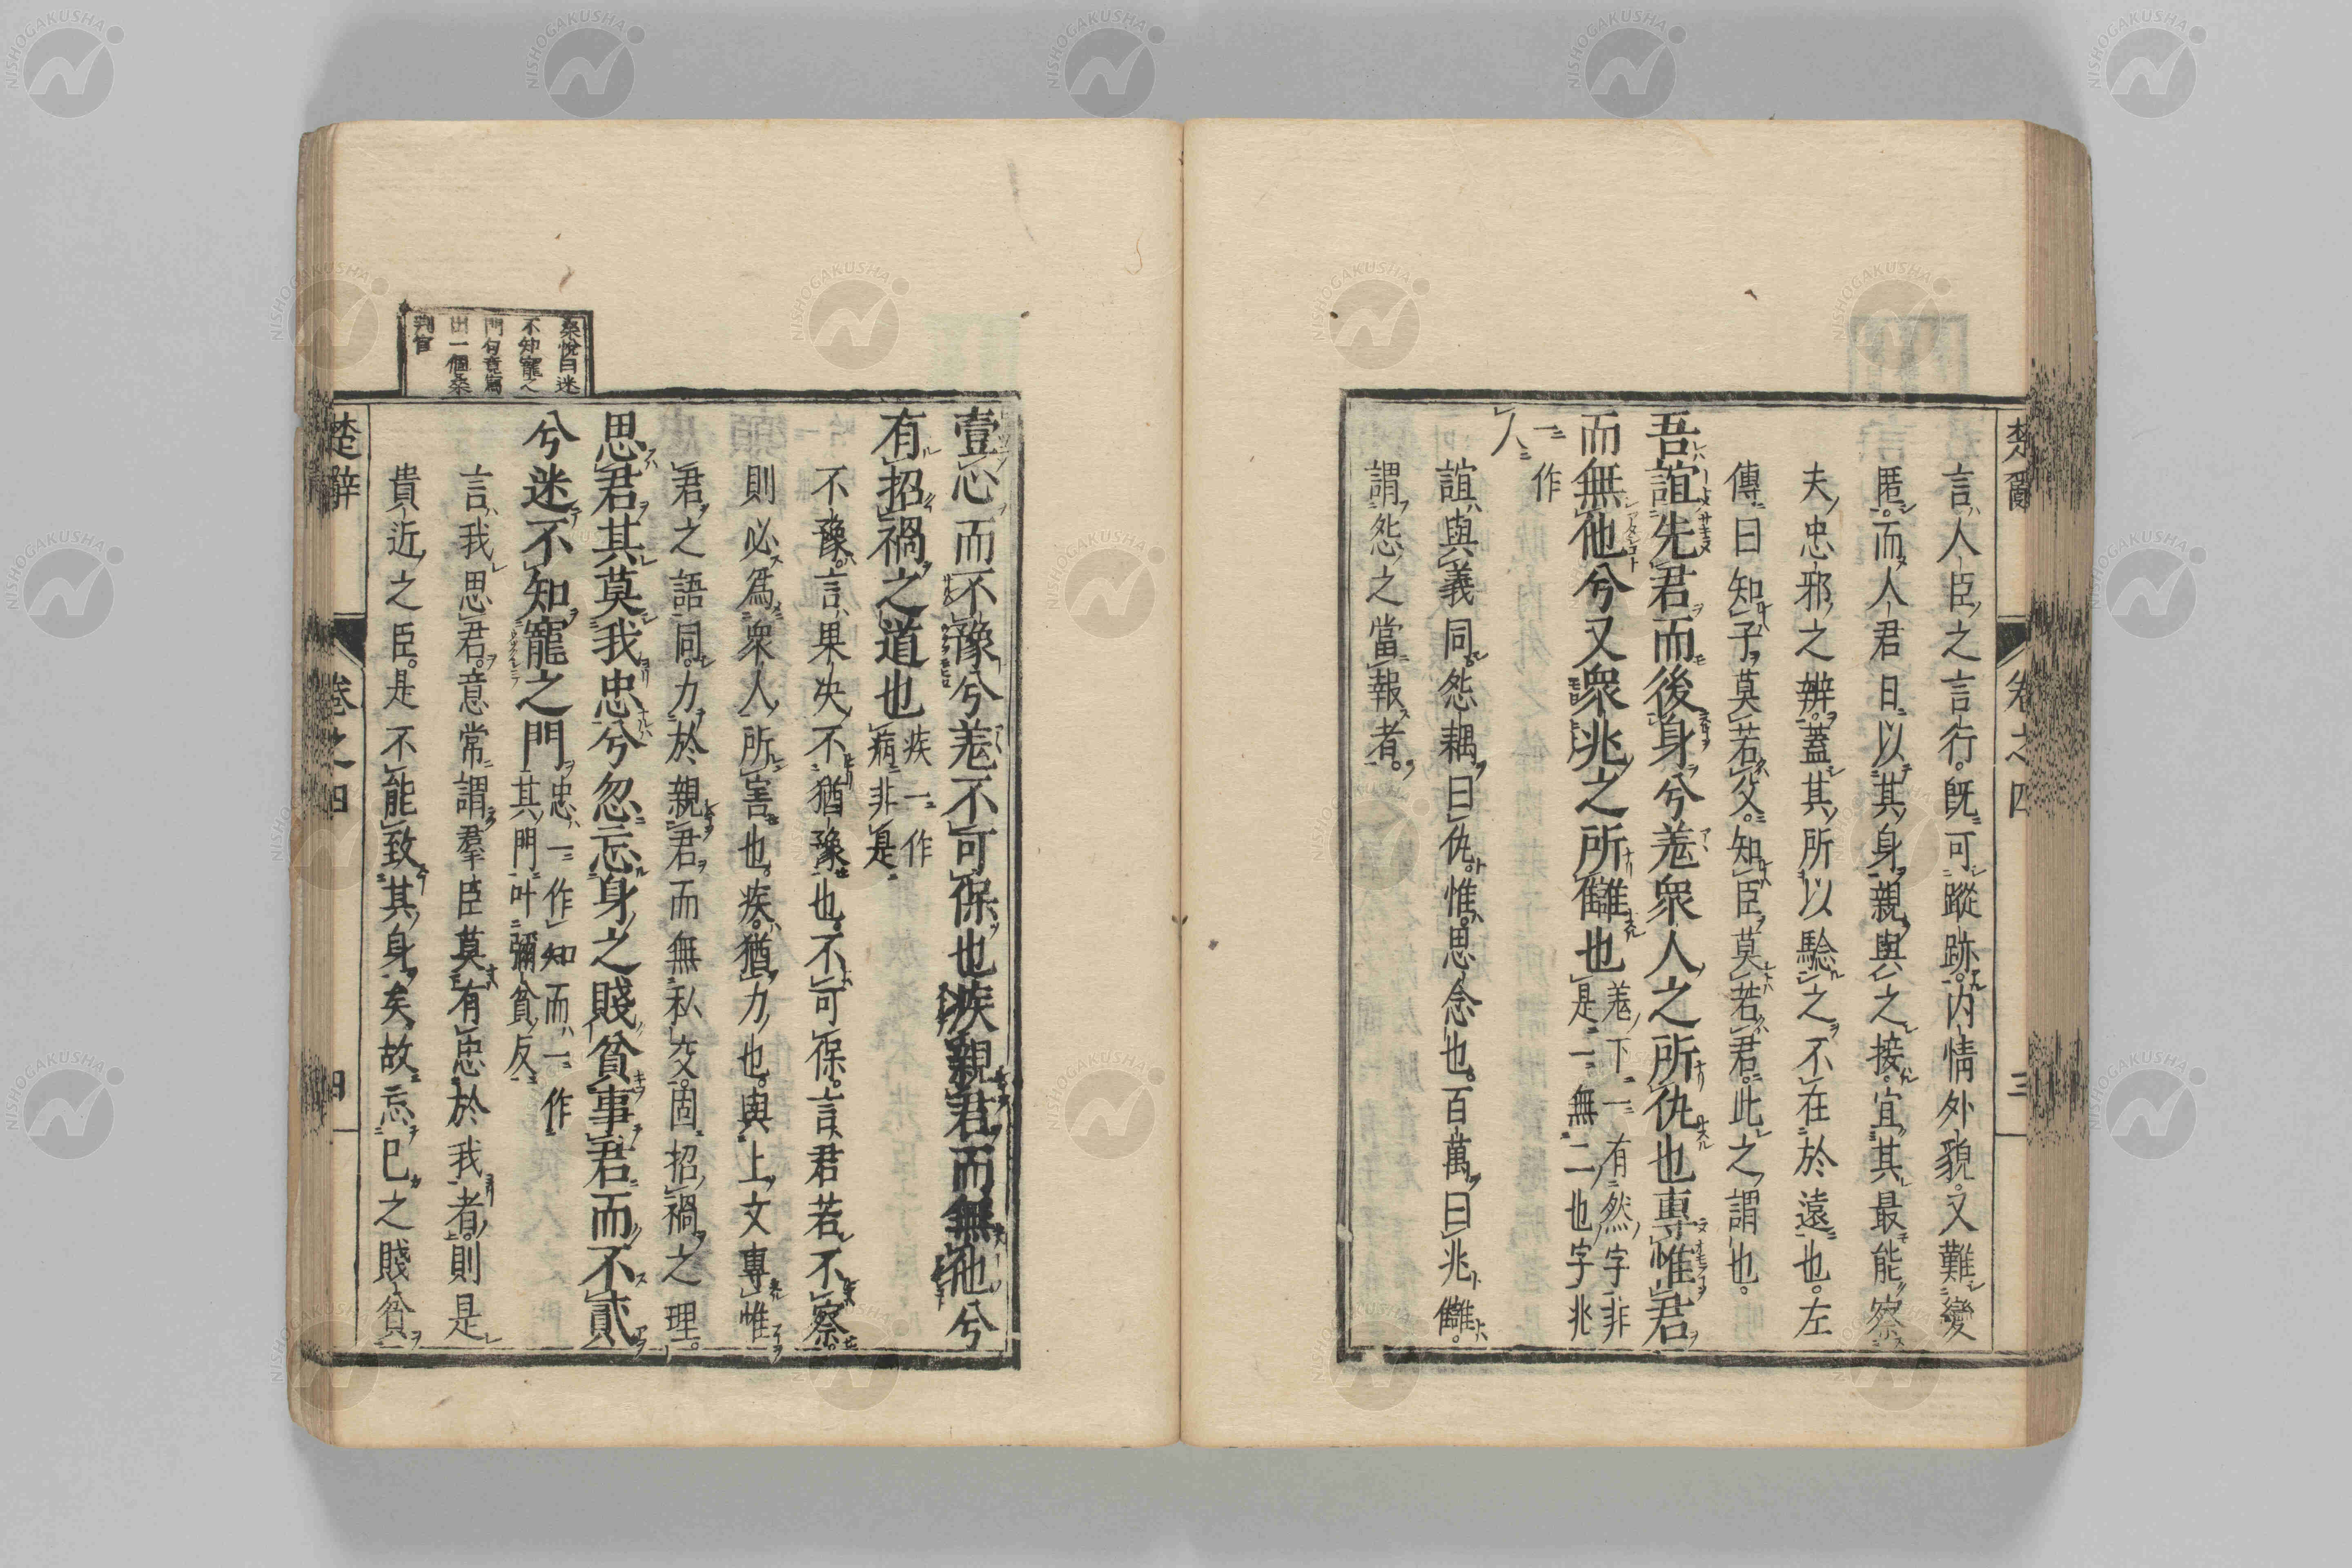 楚辭 卷之四 三
言人臣之言行旣可蹤跡。内情外貌。又難變
匿。而人君日以其身親與之接。宜其最能察
夫忠邪之辨。蓋其所以驗之不在於遠也。左
傳曰知子莫若父。知臣莫若君。此之謂也。
吾誼先君而後身兮羌衆人之所仇也專惟君
而無他兮又衆兆之所讎也羌下一有然字非是一無二也字兆
一作人
誼與義同。怨耦曰仇。惟思念也。百萬曰兆讎。
謂怨之當報者。
壹心而不豫兮羌不可保也疾親君而無他兮
有招禍之道也疾一作病非是
不豫。言果決不猶豫也。不可保。言君若不察。
則必爲衆人所害也。疾。猶力也。與上文專惟
君之語同。力於親君而無私交。固招禍之理。
思君其莫我忠兮忽忘身之賤貧事君而不貳
兮迷不知寵之門忠一作知而一作其門叶彌貧反
言我思君。意常謂羣臣莫有忠於我者。則是
貴近之臣。是不能致其身矣故忘己之賤貧
楚辭 卷之四 四
桑悅曰迷
不知寵之
門句竟寫
出一個桑
判官
NISHOGAKUSHA